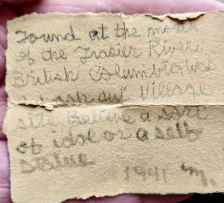 Found at the mouth
of the Frasier River,
British Columbia
village
site Believe a sort
of idol or a self
statue
1941